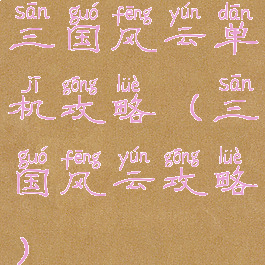 sān guó fēng yún dān
三国风云单
jī gōng lüè sān
机攻略（三
guó fēng yún gōng lüè
国风云攻略
）